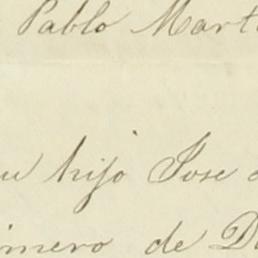 Pablo Mart
u hijo Jose
imero de D